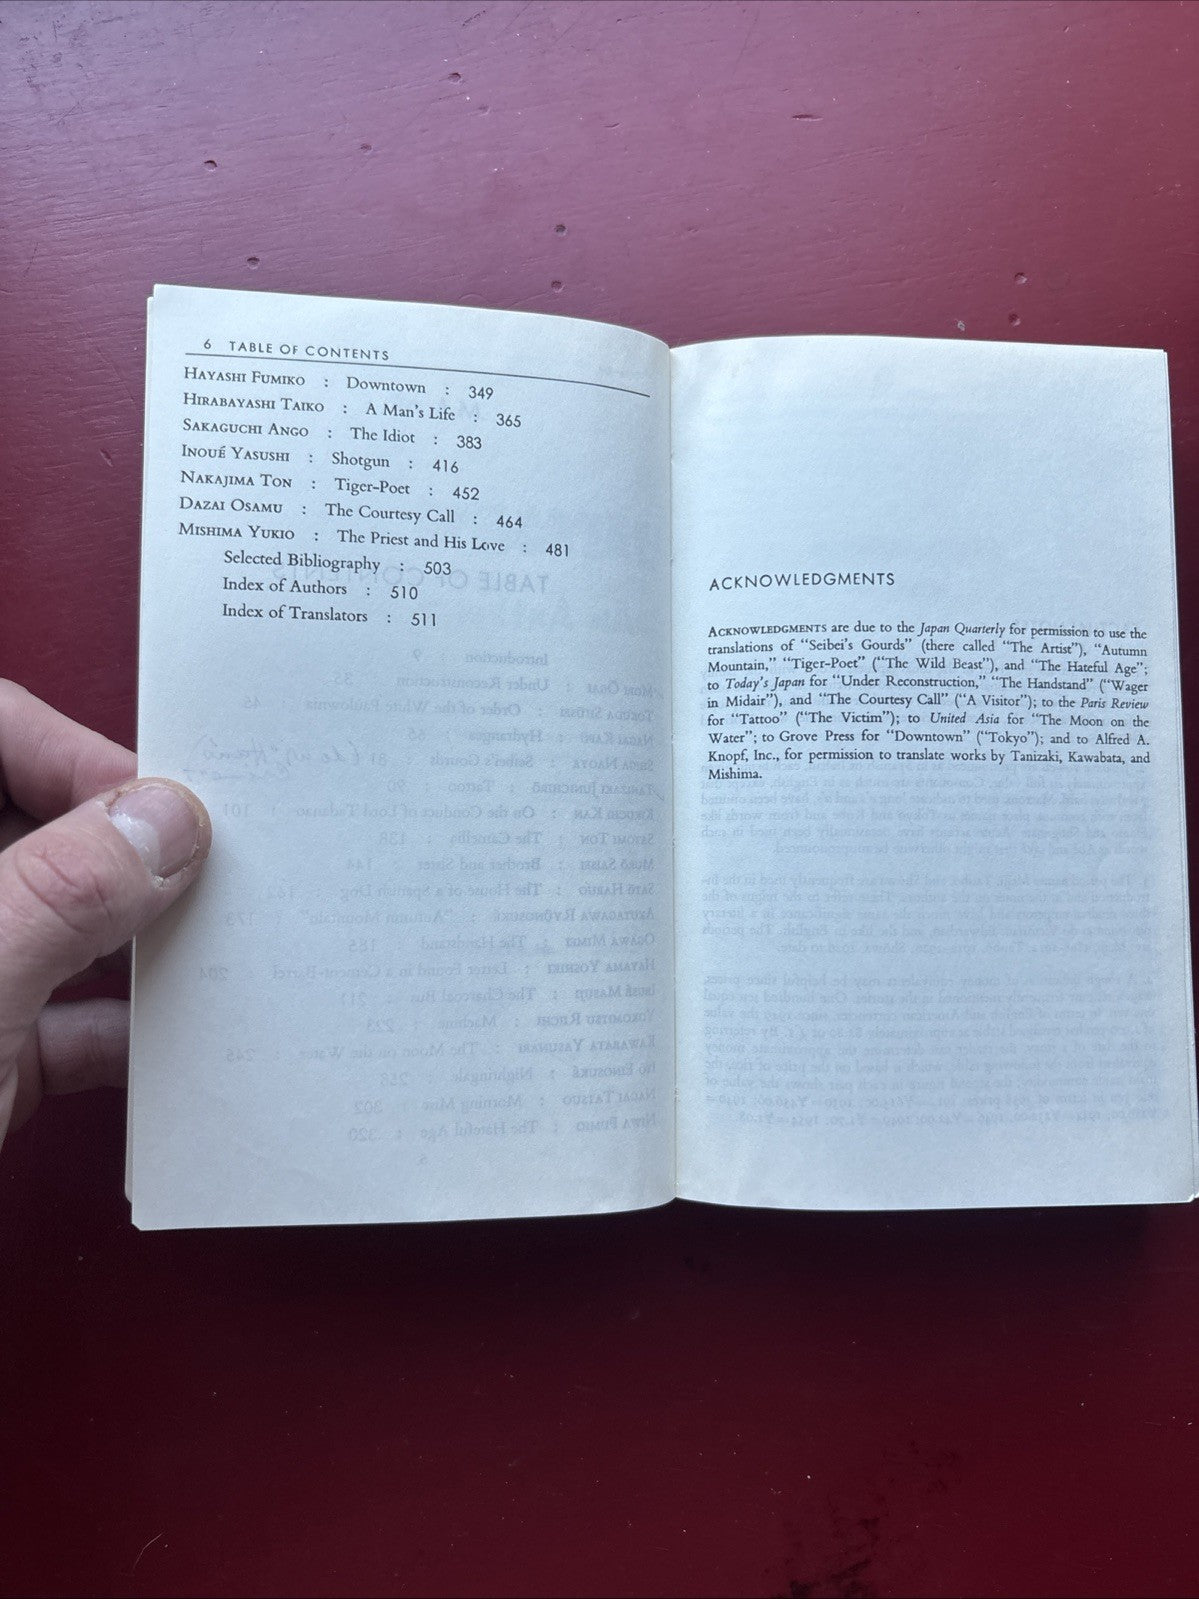 6 TABLE OF CONTENTS
HAYASHI FUMIKO : Downtown : 349
HIRABAYASHI TAIKO : A Man's Life : 365
SAKAGUCHI ANGO : The Idiot : 383
INOUÉ YASUSHI : Shotgun : 416
NAKAJIMA TON : Tiger-Poet : 452
DAZAI OSAMU : The Courtesy Call : 464
MISHIMA YUKIO : The Priest and His Love : 481
Selected Bibliography : 503
Index of Authors : 510
Index of Translators : 511
ACKNOWLEDGMENTS
ACKNOWLEDGMENTS are due to the Japan Quarterly for permission to use the
translations of "Seibei's Gourds" (there called "The Artist"), "Autumn
Mountain," "Tiger-Poet" ("The Wild Beast"), and "The Hateful Age";
to Today's Japan for "Under Reconstruction," "The Handstand" ("Wager
in Midair"), and "The Courtesy Call" ("A Visitor"); to the Paris Review
for "Tattoo" ("The Victim"); to United Asia for "The Moon on the
Water"; to Grove Press for "Downtown" ("Tokyo"); and to Alfred A.
Knopf, Inc., for permission to translate works by Tanizaki, Kawabata, and
Mishima.